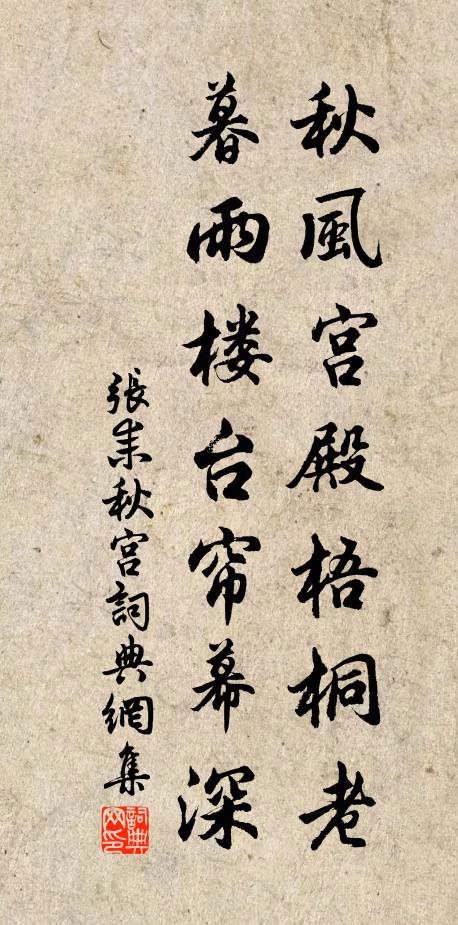 秋風宫殿梧桐老
暮雨楼台帘幕深
張耒秋宫詞典網集
詞典網印